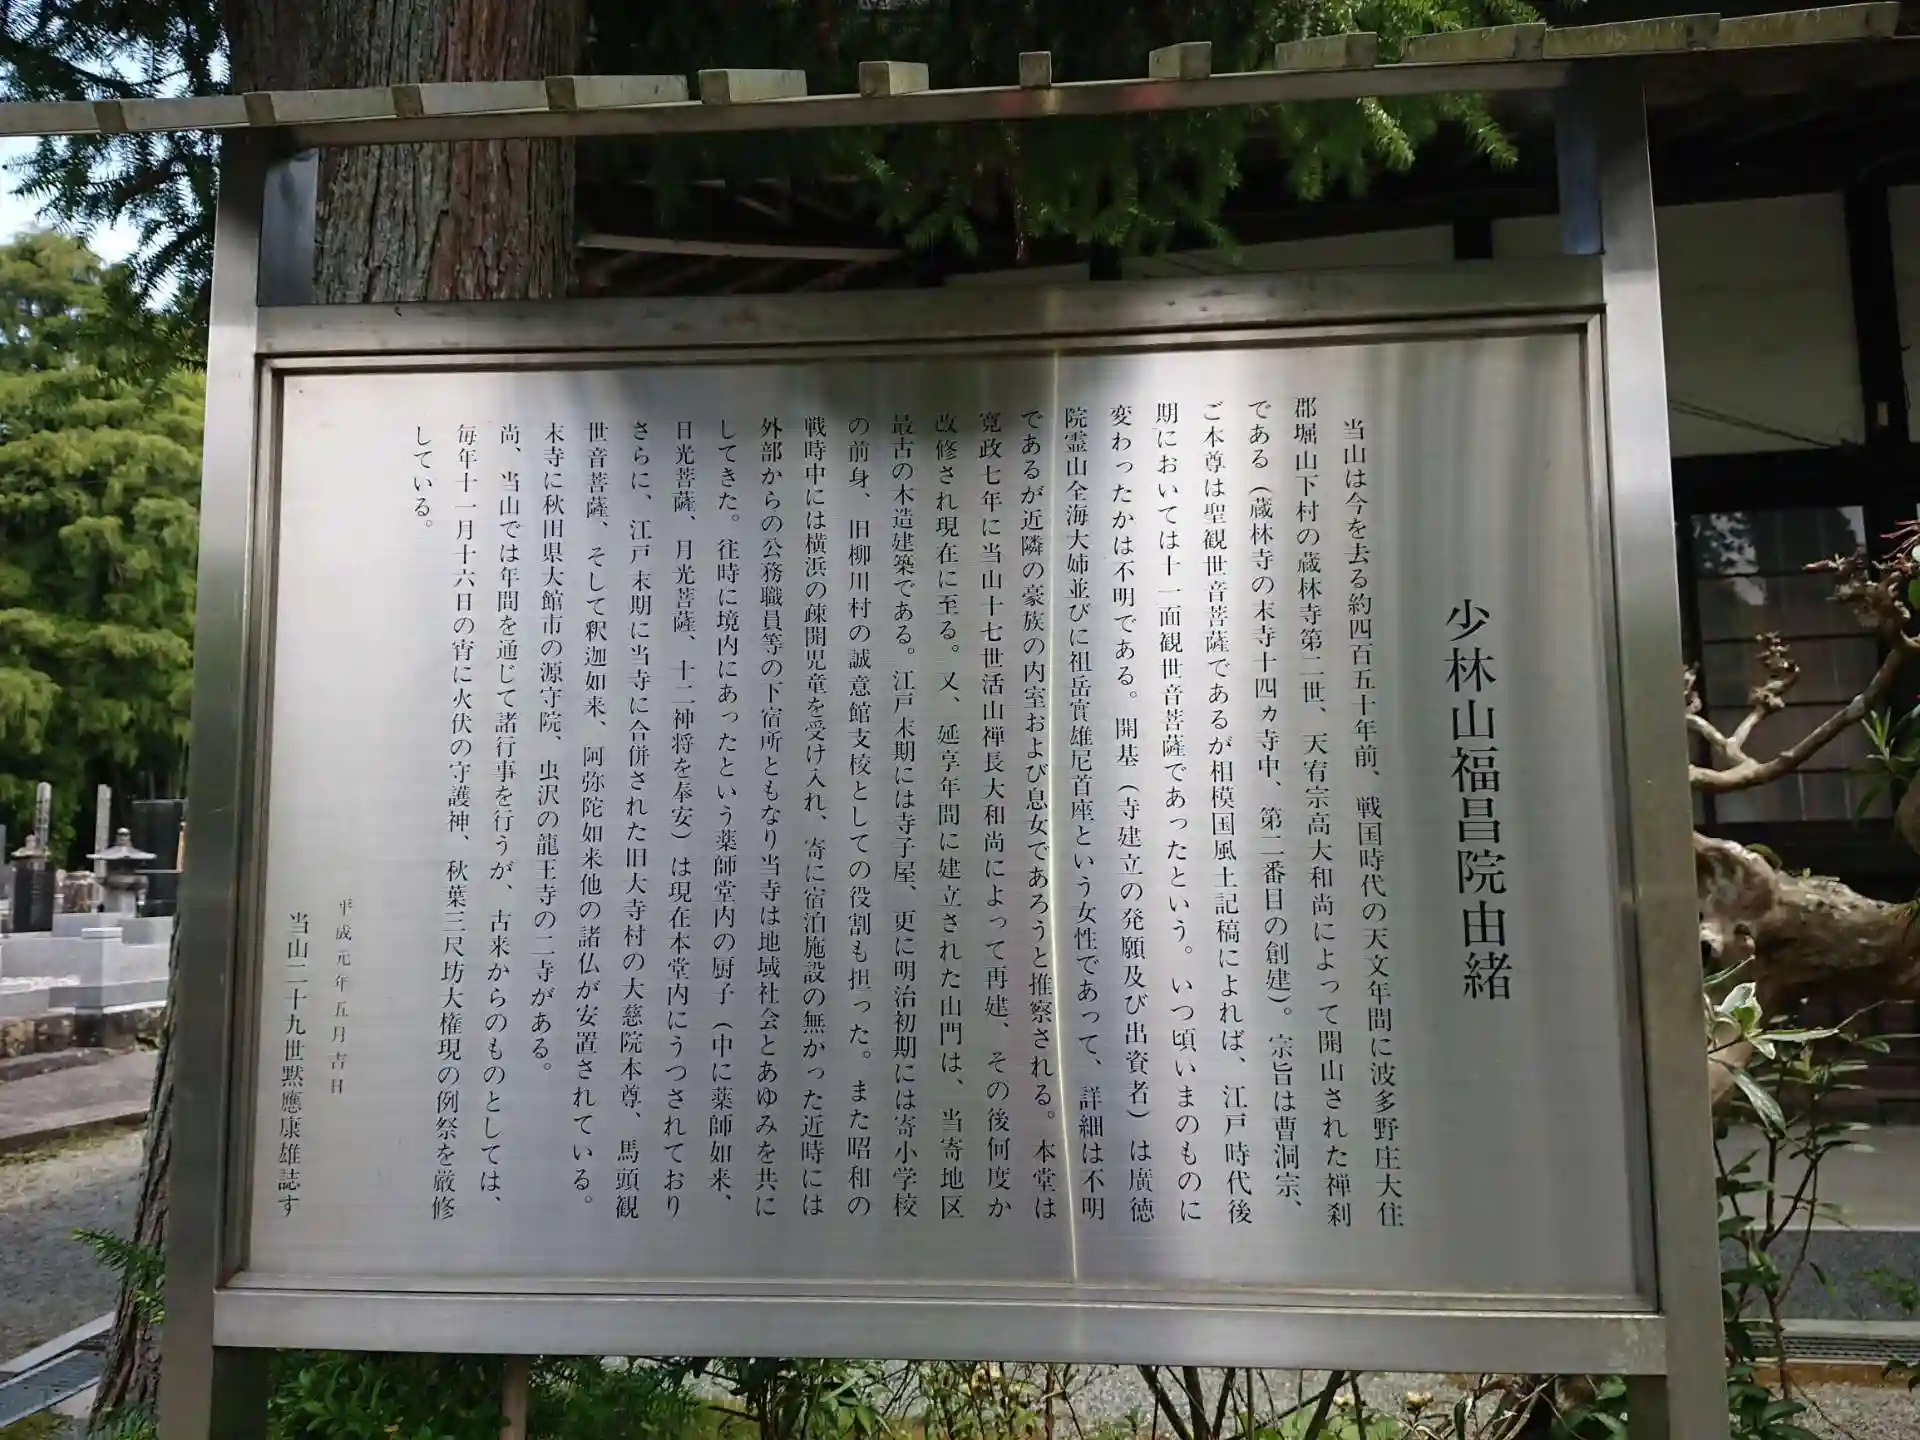 少林山福昌院由緒
当山は今を去る約四百五十年前、戦国時代の天文年間に波多野庄大住
郡堀山下村の蔵林寺第二世、天宥宗高大和尚によって開山された禅刹
である（蔵林寺の末寺十四ヵ寺中、第二番目の創建）。宗旨は曹洞宗、
ご本尊は聖観世音菩薩であるが相模国風土記稿によれば、江戸時代後
期においては十一面観世音菩薩であったという。いつ頃いまのものに
変わったかは不明である。開基（寺建立の発願及び出資者）は廣徳
院霊山全海大姉並びに祖岳實雄尼首座という女性であって、詳細は不明
であるが近隣の豪族の内室および息女であろうと推察される。本堂は
寛政七年に当山十七世活山禅長大和尚によって再建、その後何度か
改修され現在に至る。又、延享年間に建立された山門は、当寄地区
最古の木造建築である。江戸末期には寺子屋、更に明治初期には寄小学校
の前身、旧柳川村の誠意館支校としての役割も担った。また昭和の
戦時中には横浜の疎開児童を受け入れ、寄に宿泊施設の無かった近時には
外部からの公務職員等の下宿所ともなり当寺は地域社会とあゆみを共に
してきた。往時に境内にあったという薬師堂内の厨子（中に薬師如来、
日光菩薩、月光菩薩、十二神将を奉安）は現在本堂内にうつされており
さらに、江戸末期に当寺に合併された旧大寺村の大慈院本尊、馬頭観
世音菩薩、そして釈迦如来、阿弥陀如来他の諸仏が安置されている。
末寺に秋田県大館市の源守院、虫沢の龍王寺の二寺がある。
尚、当山では年間を通じて諸行事を行うが、古来からのものとしては、
毎年十一月十六日の宵に火伏の守護神、秋葉三尺坊大権現の例祭を厳修
している。
平成元年五月吉日
当山二十九世黙應康雄誌す